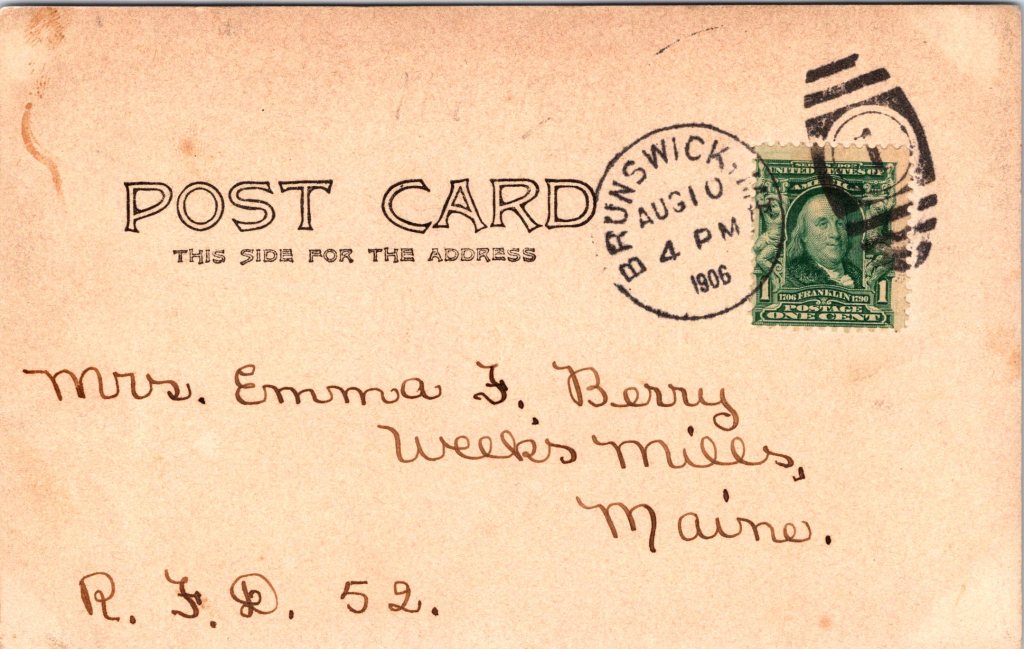 POST CARD
THIS SIDE FOR THE ADDRESS
BRUNSWICK, ME.
AUG 10
4 PM
1906
SERIES 1902
UNITED STATES OF
AMERICA
1 1706 FRANKLIN 1790 1
POSTAGE
ONE CENT
1
Mrs. Emma F. Berry
Week's Mills,
Maine.
R. F. D. 52.